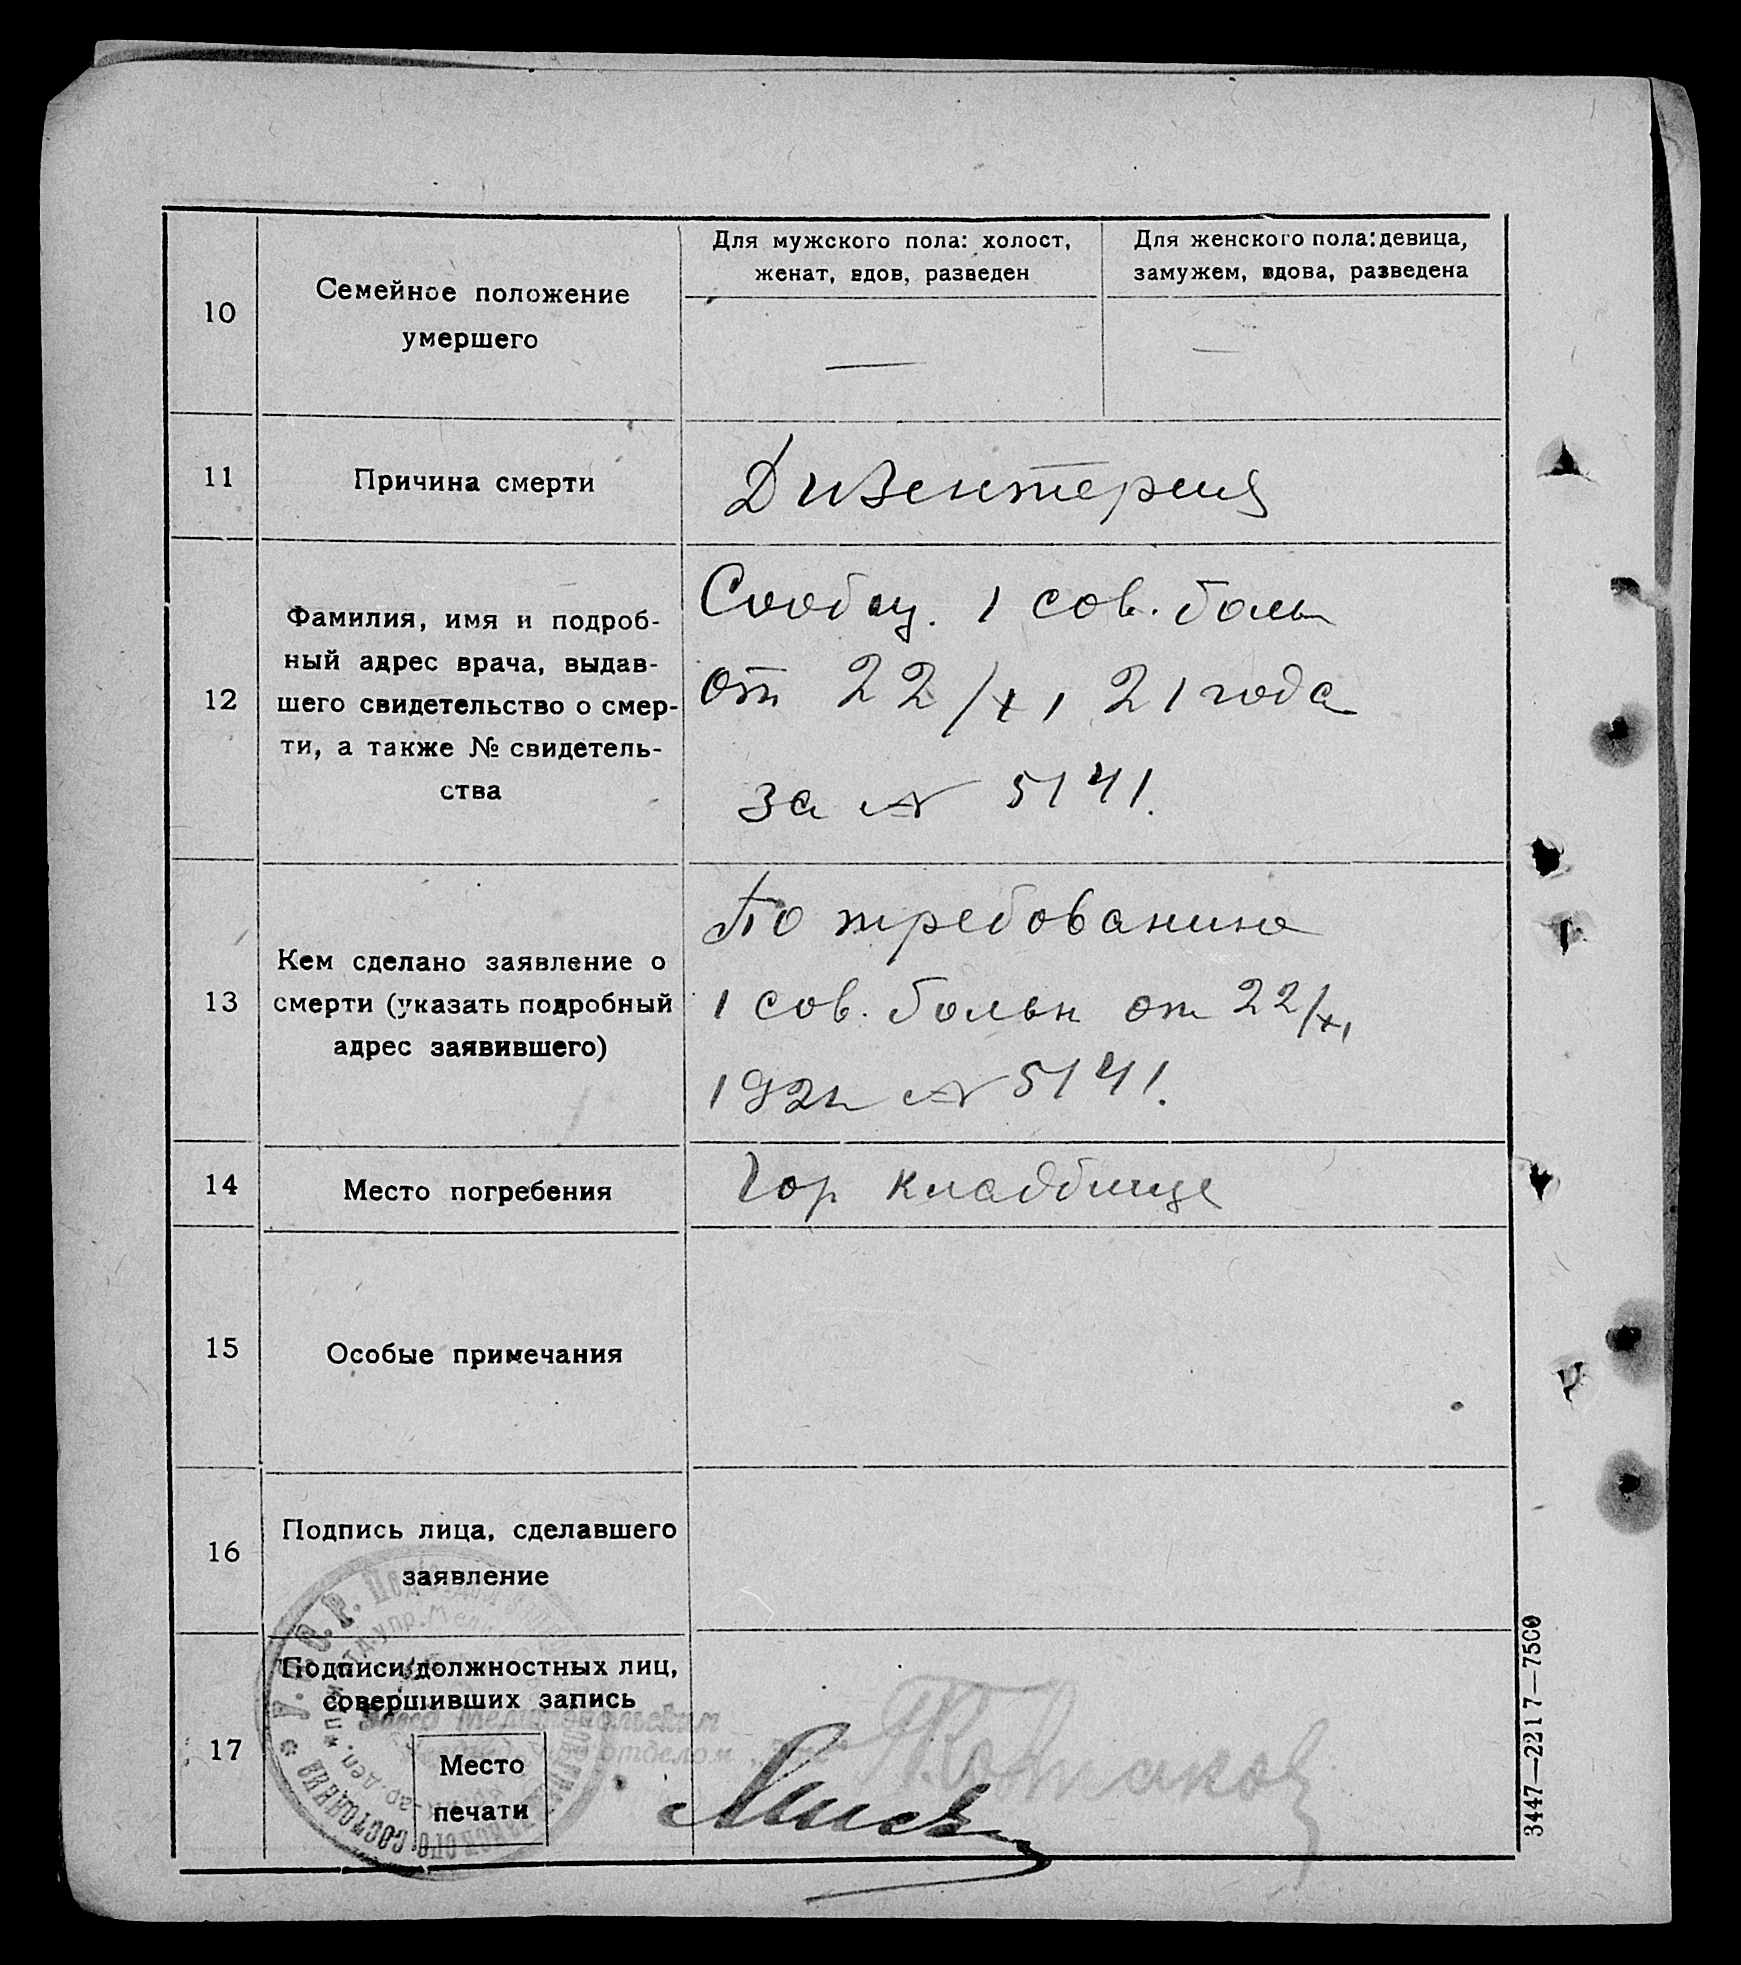 10
Семейное положение
умершего
Для мужского пола: холост,
женат, вдов, разведен
Для женского пола: девица,
замужем, вдова, разведена
—
—
11
Причина смерти
Дизентерия
12
Фамилия, имя и подроб-
ный адрес врача, выдав-
шего свидетельство о смер-
ти, а также № свидетель-
ства
Сообщ. 1 сов. больн
от 22/XI 21 года
за № 5141.
13
Кем сделано заявление о
смерти (указать подробный
адрес заявившего)
По требованию
1 сов. больн от 22/XI
1921 № 5141.
14
Место погребения
Гор кладбище
15
Особые примечания
16
Подпись лица, сделавшего
заявление
17
Подписи должностных лиц,
совершивших запись
Место
печати
У. С. С. Р.
состояния
Мелитопольским
отделом
3447—2217—7500